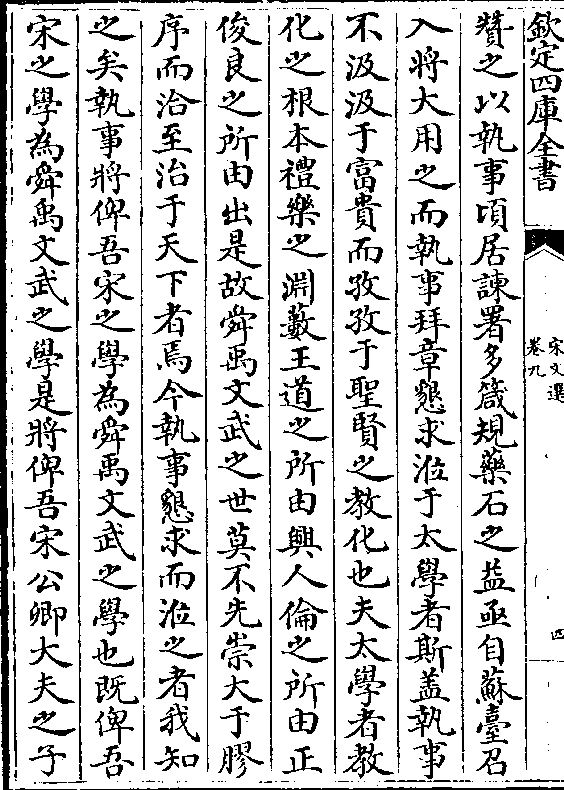 欽定四庫全書
宋文選
卷九
四
贊之以執事頃居諫署多箴規藥石之益亟自蘇臺召
入將大用之而執事拜章懇求涖于太學者斯盖執事
不汲汲于富貴而孜孜于聖賢之教化也夫太學者教
化之根本禮樂之淵藪王道之所由興人倫之所由正
俊良之所由出是故舜禹文武之世莫不先崇大于膠
序而洽至治于天下者焉今執事懇求而涖之者我知
之矣執事將俾吾宋之學為舜禹文武之學也既俾吾
宋之學為舜禹文武之學是將俾吾宋公卿大夫之子